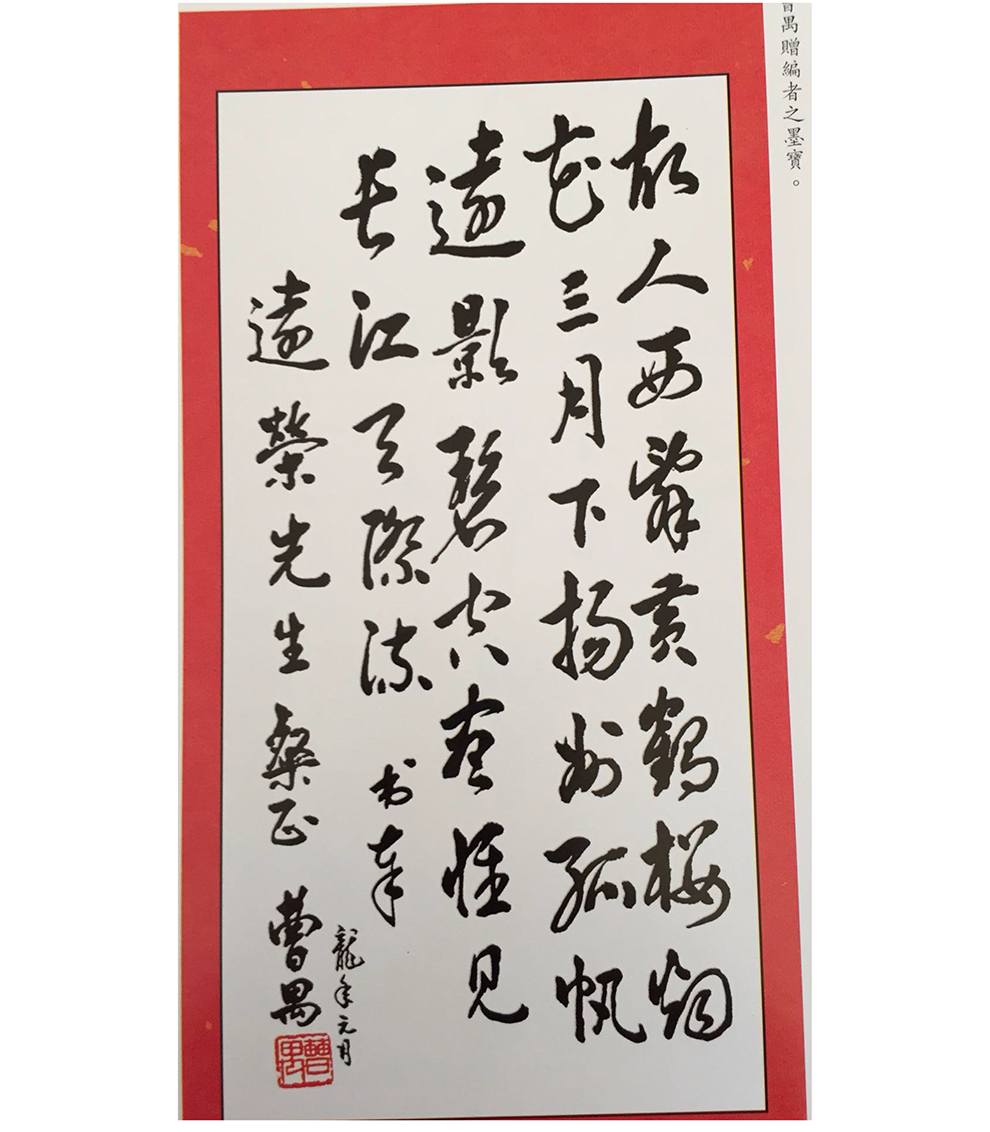 曹禺贈編者之墨寶。
故人西辭黄鶴楼烟
花三月下揚州孤帆
遠影碧空盡惟見
長江天際流 书奉
遠榮先生粲正 曹禺
龍年元月
曹禺